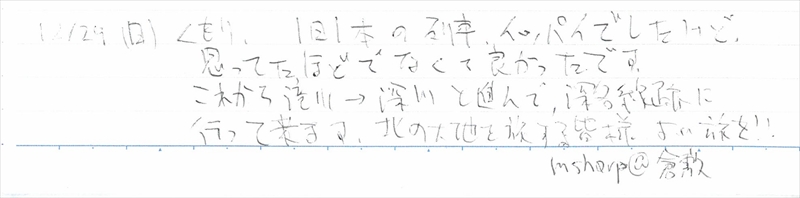 12/29(日) くもり、1日1本の列車、イッパイでしたけど、
思ってたほどでなくて良かったです。
これから滝川→深川と進んで、深名線跡に
行って来ます。北の大地を旅する皆様 よい旅を!!
msharp@倉敷